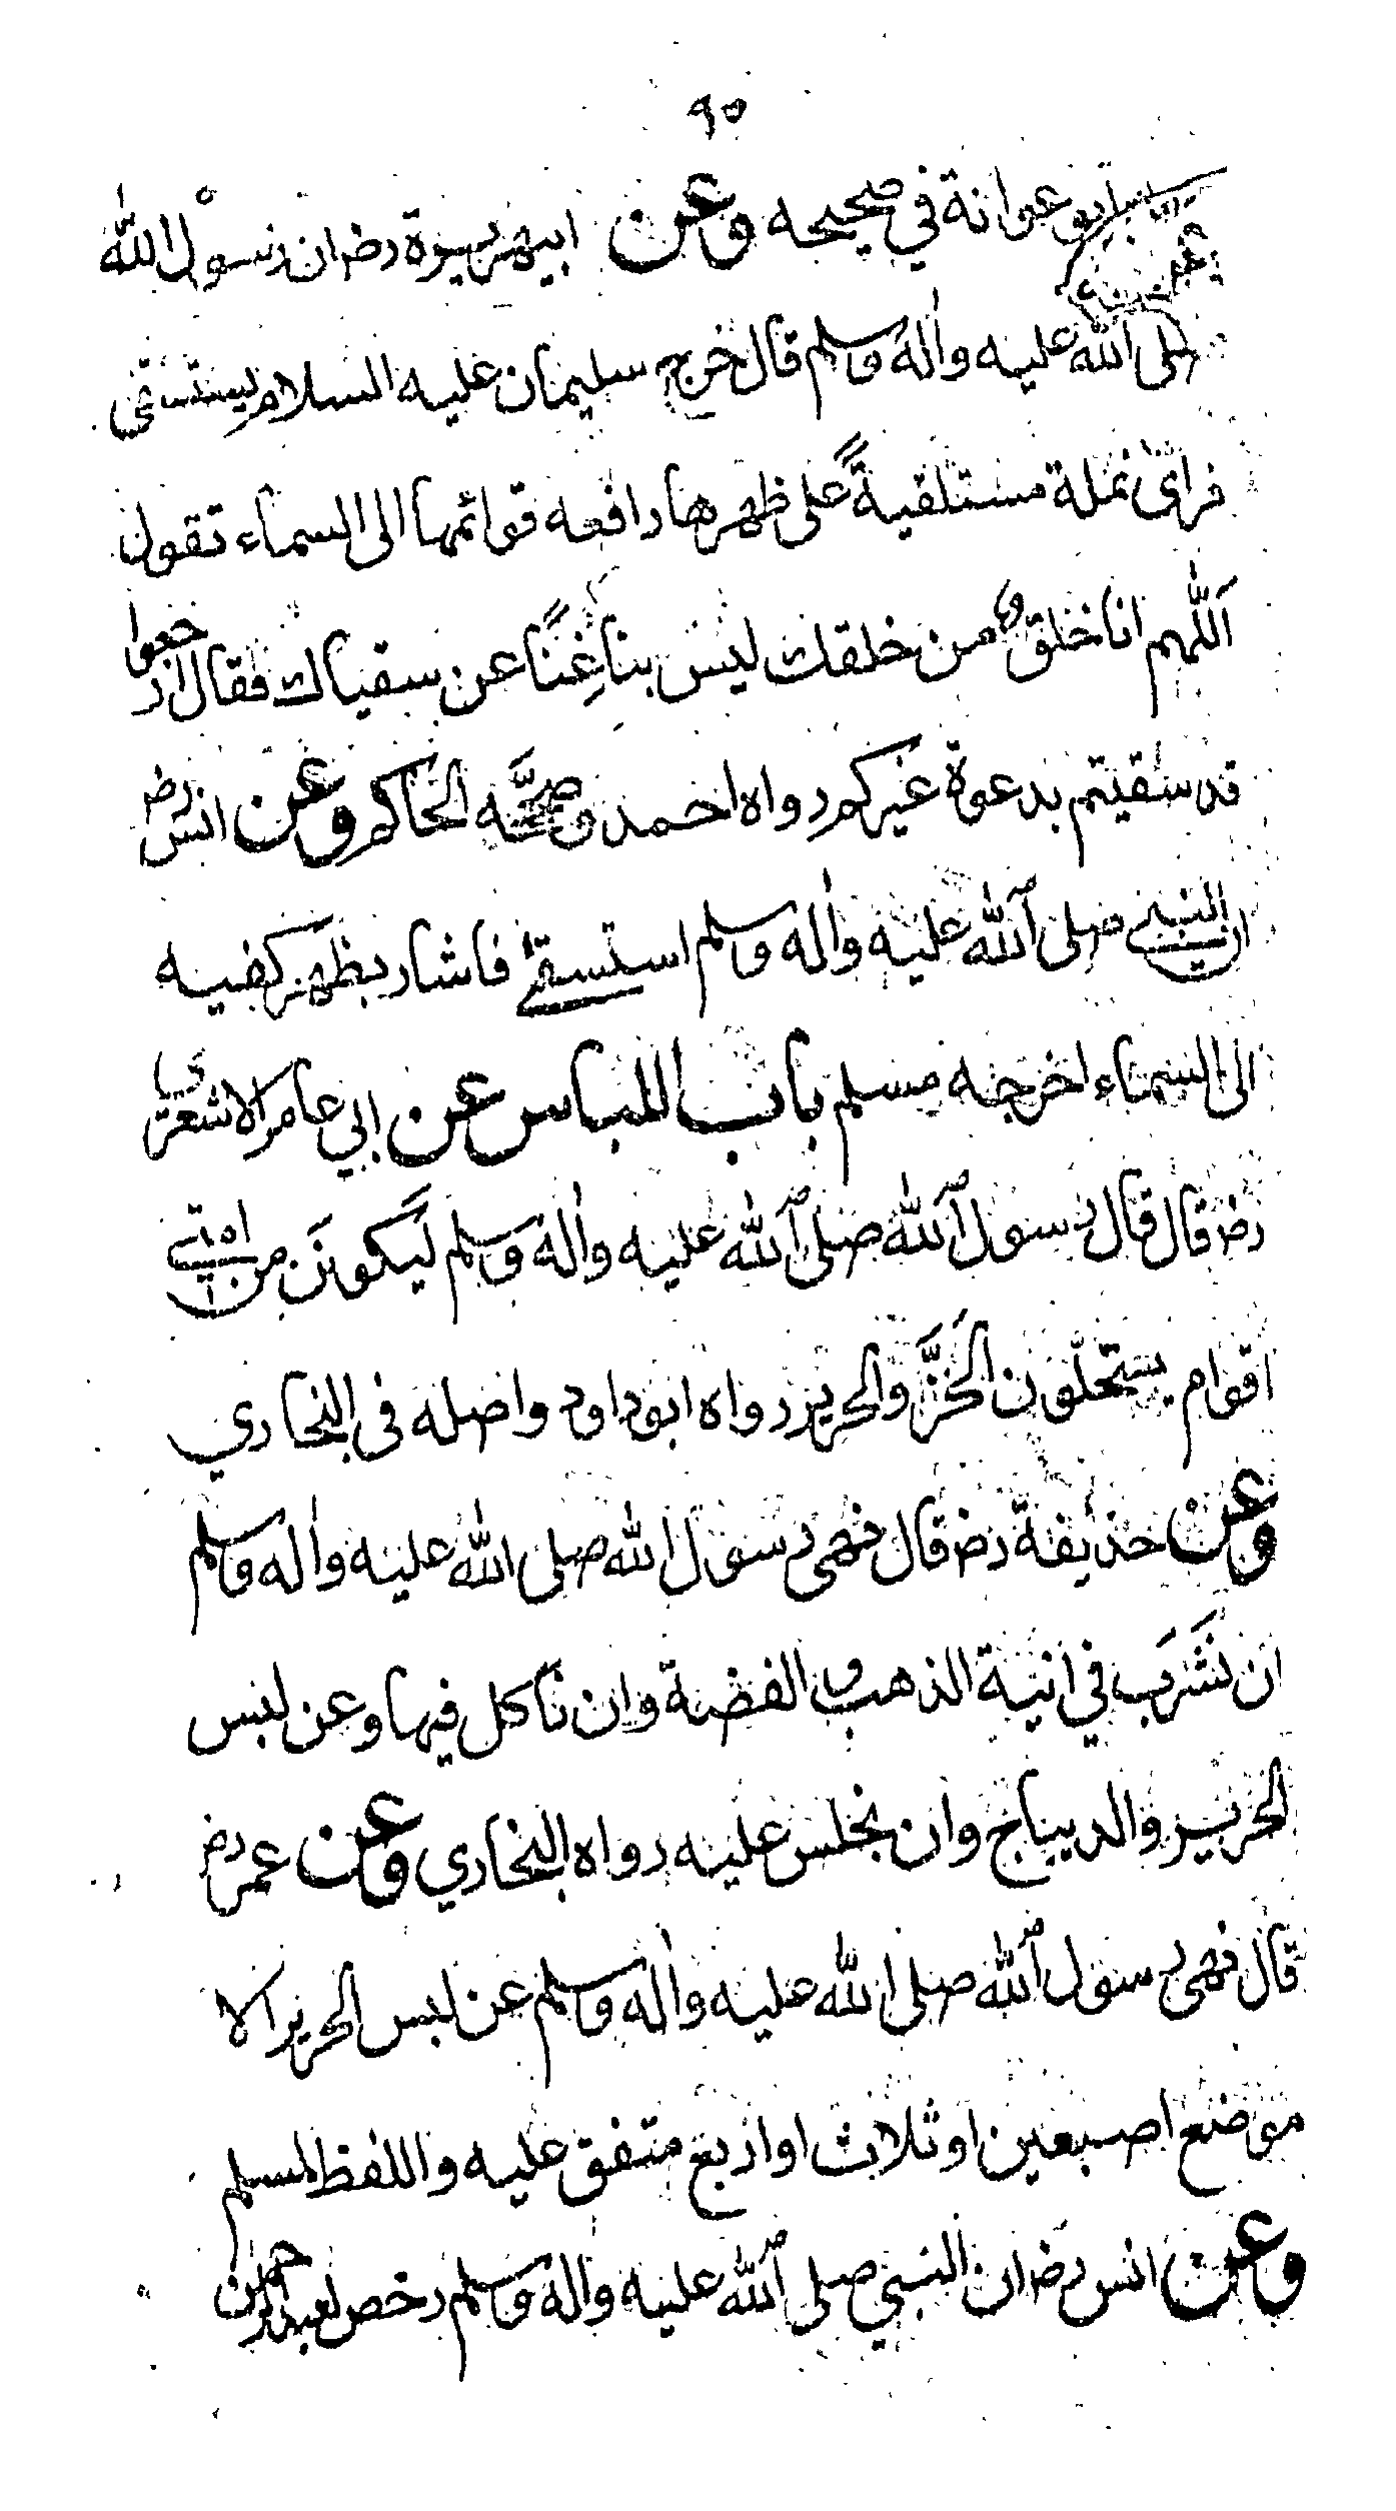 ٩٥
ابو عوانة في صحيحه وعن ابيهريرة رض ان رسول الله
صلى الله عليه واله وسلم قال خرج سليمان عليه السلام يستسقي
فراى نملة مستلقيةً على ظهرها رافعه قوائمها الى السماء تقول
اللهم انا خلق من خلقك ليس بنا غِنًا عن سقياك فقال ارجعوا
قد سقيتم بدعوة غيركم رواه احمد وصحَّحه الحاكم وعن انس رض
ان النبي صلى الله عليه واله وسلم استسقى فاشار بظهر كفيه
الى السماء اخرجه مسلم باب اللباس عن ابي عامر الاشعري
رض قال قال رسول الله صلى الله عليه واله وسلم ليكونَن من امتي
اقوام يستحلّون الخَزَّ والحرير رواه ابوداود واصله فى البخاري
وعن حذيفة رض قال نهى رسول الله صلى الله عليه واله وسلم
ان نَشرَب في انية الذهب و الفضة وان ناكل فيها وعن لبس
الحرير والديباج وان نجلس عليه رواه البخاري وعن عمر رض
قال نهى رسول الله صلى الله عليه واله وسلم عن لبس الحرير الا
موضع اصبعين او ثلاث او اربع متفق عليه واللفظ لمسلم
وعن انس رض ان النبي صلى الله عليه واله وسلم رخص لعبدالرحمن